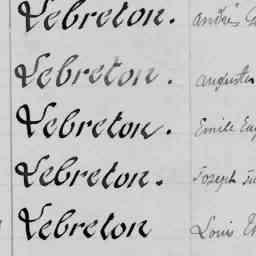 Lebreton. André
Lebreton. Auguste
Lebreton. Emile Eug
Lebreton. Joseph
Lebreton Louis